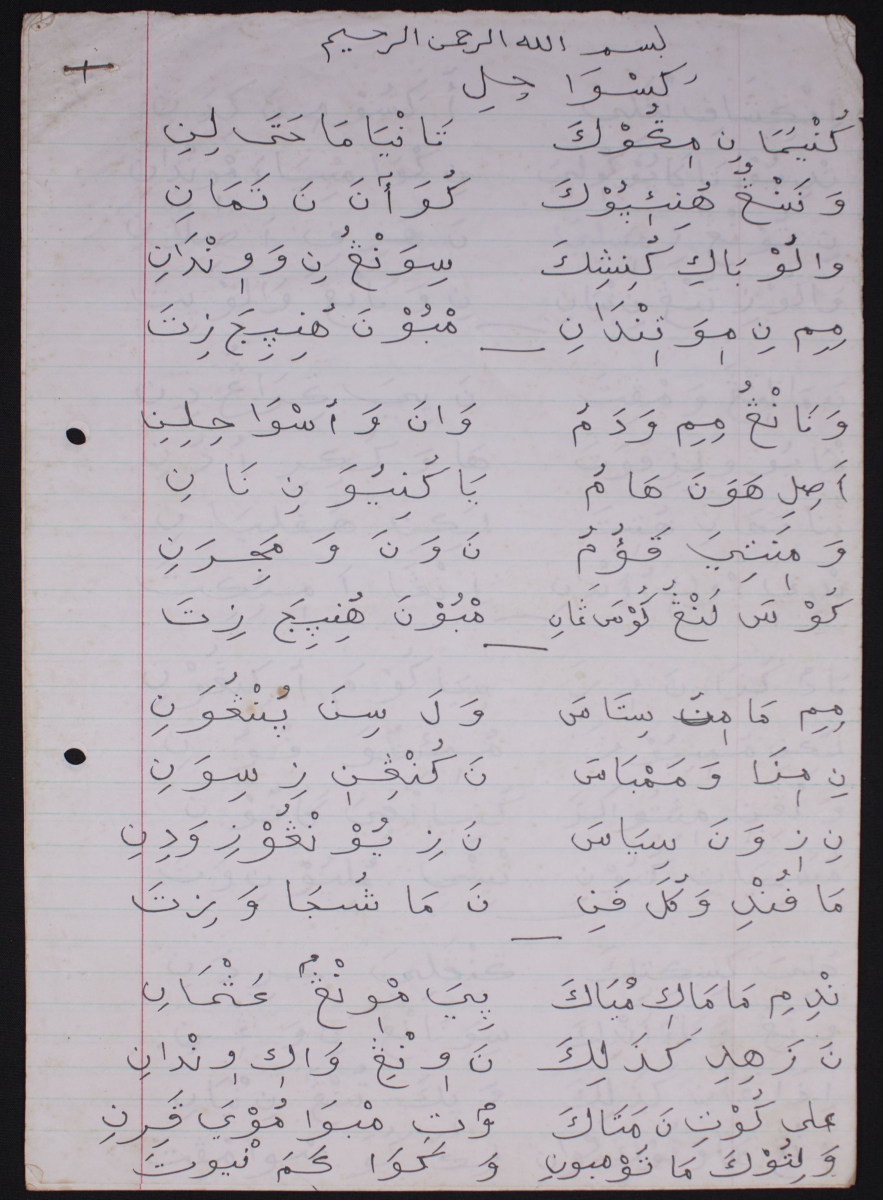 بسم الله الرحمن الرحيم
كِسْوَا حِلِ
كُنْيَمَا نِ مِكُوْكَ تَانْيَامَا حَتَى لِنِ
وَتَنْڠُ هُنِئِپُوْكَ كُوَ أَنَ نَ تَمَانِ
وَالُوْ بَاكِ كُنِشِكَ سِوَنْڠُ نِ وَوِنْدَانِ
مِيمِ نِ مِوَنِنْدَانِ مْبُوْنَ هُنِپِجَ زِتَ
وَنَانْڠُ مِيمِ وَدَمُ وَانَ وَأُسْوَاحِلِينِ
أَصِلِ هَوَنَ هَامُ يَاكُنِيُوَنِ نَانِ
وَمِنَشِيَ قَوُمُ نَوَنَ وَمِجِرَنِ
كُوْسَ لَنْڠُ كُوْسَمَانِ مْبُوْنَ هُنِپِجَ زِتَ
مِيمِ مَامِنُ سِتَاسَ وَلَ سِنَ پُنْڠُوَنِ
نِ مِزَا وَمَمْبَاسَ نَكُنْڠِنِ زِسِوَنِ
نِزِوَنَ سِيَاسَ نَزِيُوْنْڠُوْزِ وَدِنِ
مَافُنْدِ وَكُلَّ فَنِ نَ مَاشُجَا وَزِتَ
نْدِمِ مَامَاكِ مْيَاكَ پِيَ مْوِنْڠُ عُثْمَانِ
نَزَهِدِ كَذَلِكَ نَوِنْڠِ وَاكِ وِنْدَانِ
علي كُوْتِ نَمَتَاكَ وْتِ مْبْوَا مُوْيَ قَرِنِ
وَلِتُوْكَ مَا تَوْمبونِ وَكَوَا كَمَ نْيوتَ